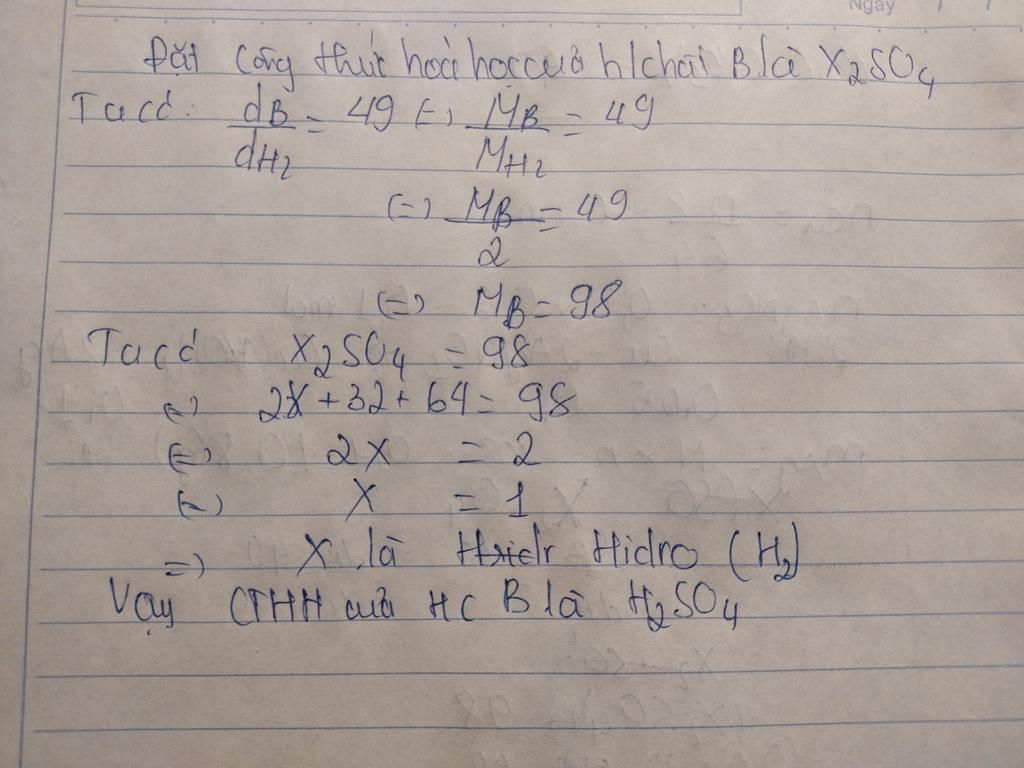 Ngày / /
Đặt công thức hoá học của h/chất B là X₂SO₄
Ta có: dB/dH₂ = 49 (=) MB/MH₂ = 49
(=) MB/2 = 49
(=) MB = 98
Ta có X₂SO₄ = 98
(=) 2X + 32 + 64 = 98
(=) 2X = 2
(=) X = 1
=) X là Hidro (H₂)
Vậy CTHH của HC B là H₂SO₄